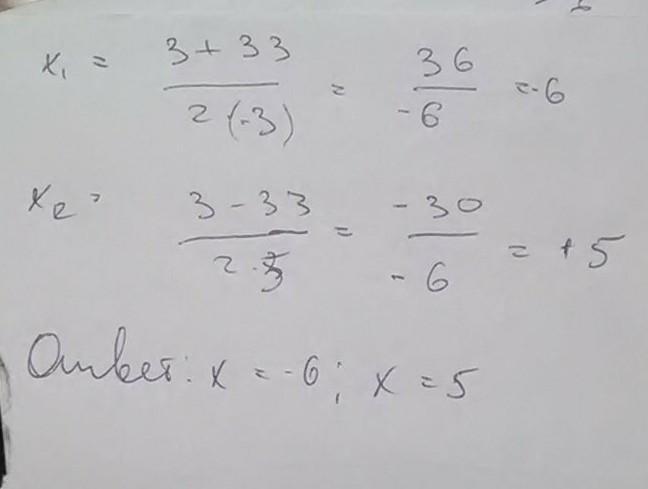 x₁ = 3 + 33 / 2(-3) = 36 / -6 = -6
x₂ = 3 - 33 / 2·3 = -30 / -6 = +5
Ответ: x = -6; x = 5